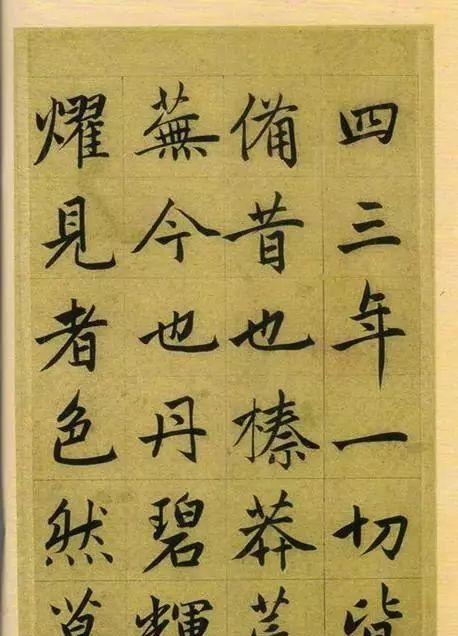 四三年一切皆
備昔也榛莽荒
蕪今也丹碧輝
燿見者色然